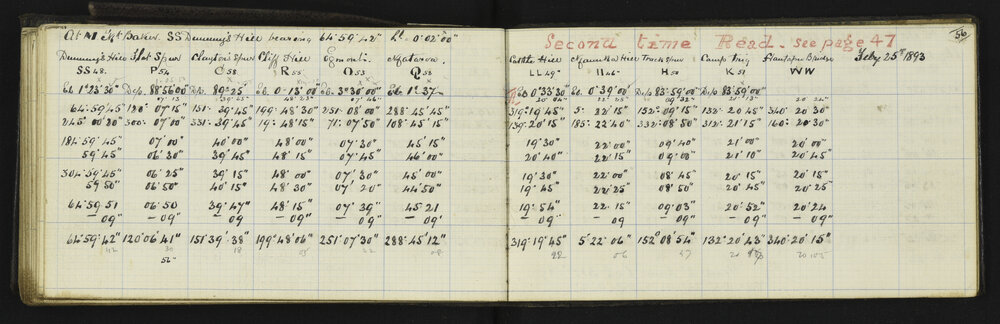 At M Mt Baker SS Dummy's Hill bearing 64°59'42" 0°02'00"
Second time Read. see page 47
56
Dummy's Hill Flat Spur Clayton's Spur Cliff Hill Egmont Cattle Hill Track Spur Camp Trig Feby 25th 1893
SS 48. P 54 C 58 R 55 O 53 Q 58 LL 49 II 46 H 50 K 51 WW
El. 1°23'30" Dep. 88°56'00" Dep. 89°25" El. 0°13'00" El. 3°30'00" El. 1°37 El. 0°33'30" El. 0°39'00" Dep 83°59'00" Dep 83°59'00"
64°59'45" 120°07'15" 151°39'45" 199°48'30" 251°08'00" 288°45'45" 319°19'45" 5°22'15" 152°09'15" 132°20'45" 340°20'30"
245°00'20" 300°07'00" 331°39'45" 19°48'15" 71°07'50" 108°45'15" 139°20'15" 185°22'40" 332°08'50" 312°21'15" 160°20'30"
184°59'45" 07'00 40'00" 48'00 07'30" 45'15" 19'30" 22'00" 09'40" 21'00" 20'00"
59'45" 06'30 39'45" 48'15" 07'45" 46'00" 20'40" 22'15" 09'00" 21'10" 20'45"
304°59'45" 06'25" 39'15" 48'00" 07'30" 45'00" 19'30" 22'00" 08'45" 20'15" 20'15"
59'50" 06'50" 40'15" 48'30" 07'20" 44'50" 19'45" 22'25" 08'50" 20'45" 20'25"
64°59'51 06'50 39'47" 48'15" 07'39" 45'21 19'54" 22'15" 09'03" 20'52" 20'24
— 09" — 09" — 09 — 09" — 09" — 09" — 09 — 09 — 09" — 09" — 09"
64°59'42" 120°06'41" 151°39'38" 199°48'06" 251°07'30" 288°45'12" 319°19'45" 5°22'06" 152°08'54" 132°20'43" 340°20'15"
42 18 05 22 08 22 06 47 20
52"